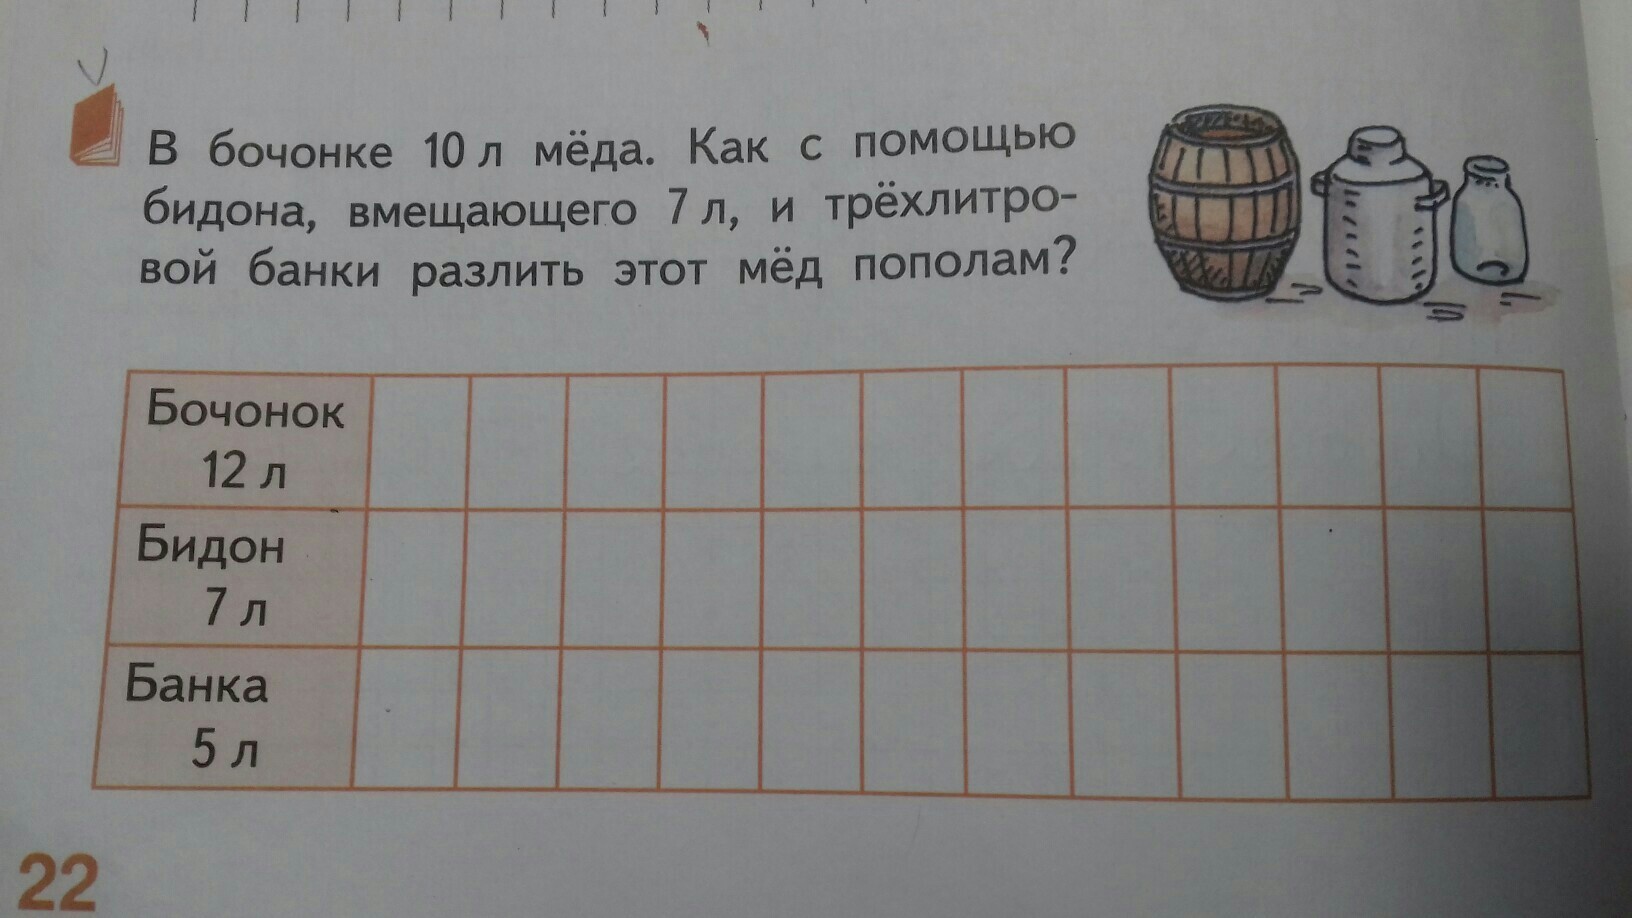 В бочонке 10 л мёда. Как с помощью
бидона, вмещающего 7 л, и трёхлитро-
вой банки разлить этот мёд пополам?
Бочонок
12 л
Бидон
7 л
Банка
5 л
22